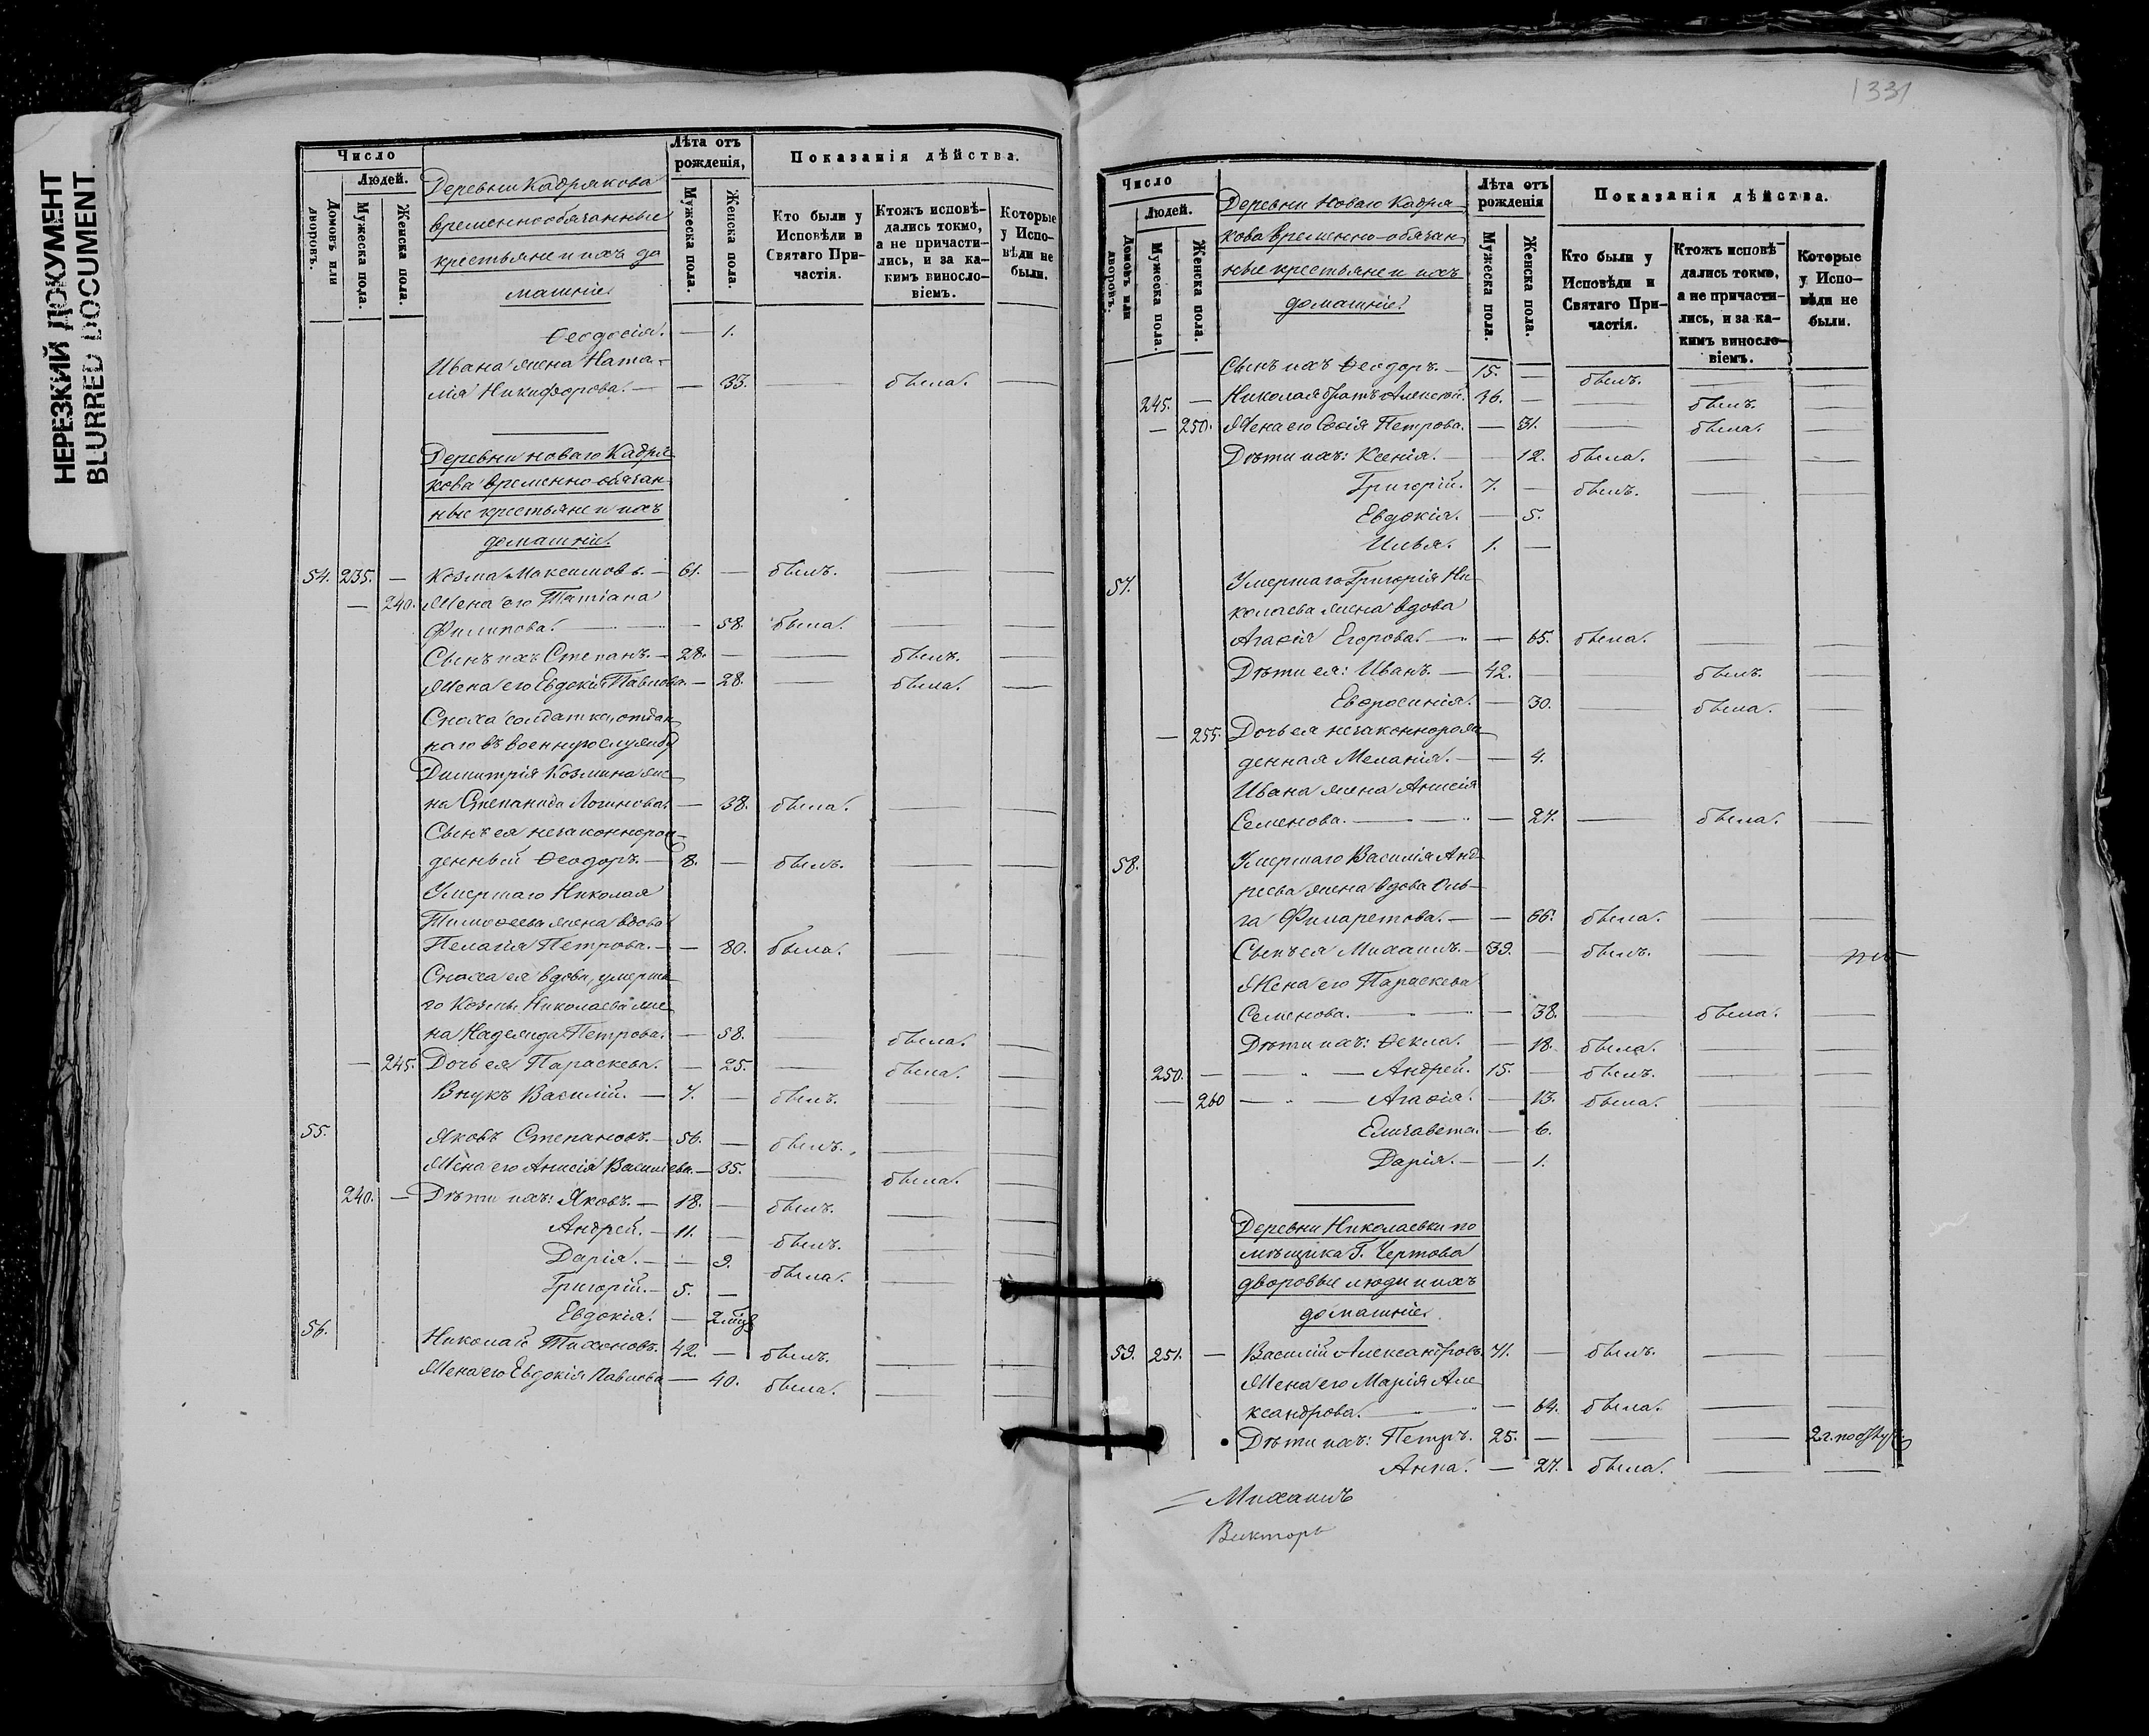 НЕРЕЗКИЙ ДОКУМЕНТ
BLURRED DOCUMENT.
Число
Людей.
Домовъ или дворовъ.
Мужеска пола.
Женска пола.
Деревни Кадрякова
временнообязанные
крестьяне и ихъ до
машніе.
Лѣта отъ рожденія,
Мужеска пола.
Женска пола.
Показанія дѣйства.
Кто были у Исповѣди и Святаго Причастія.
Ктожъ исповѣдались токмо, а не причастились, и за какимъ винословіемъ.
Которые у Исповѣди не были.
Ѳеодосія. — 1.
Ивана жена Ната-
лія Никифорова. — — 33. — была. —
Деревни новаго Кадря
кова временно-обязан
ные крестьяне и ихъ
домашніе.
54. 235. — Козма Максимовъ. — 61. — былъ. — —
— 240. Жена его Татіана
Филипова. — — 58. была. — —
Сынъ ихъ Степанъ. — 28. — — былъ. —
Жена его Евдокія Павлова. — 28. — была. —
Сноха солдатка, отдан
наго въ военную службу
Димитрія Козмина же
на Степанида Логинова. — 38. была. — —
Сынъ ея незаконнорож
денный Ѳеодоръ. — 8. — былъ. — —
Умершаго Николая
Тимоѳеева жена вдова
Пелагія Петрова. — — 80. была. — —
Сноха ея вдова, умерша
го Козмы Николаева же
на Надежда Петрова. — 58. — была. —
— 245. Дочь ея Параскева. — 25. — была. —
Внукъ Василій. — 7. — былъ. — —
55. Яковъ Степановъ. — 56. — былъ. — —
Жена его Анисія Василіева. — 35. — была. —
240. — Дѣти ихъ: Яковъ. — 18. — былъ. — —
Андрей. — 11. — былъ. — —
Дарія. — — 9. была. — —
Григорій. — 5. —
Евдокія. — 2 мцѣ
56. Николай Тихоновъ. 42. — былъ. — —
Жена его Евдокія Павлова — 40. была. — —
1331
Число
Людей.
Домовъ или дворовъ.
Мужеска пола.
Женска пола.
Деревни Новаго Кадря
кова временно-обязан
ные крестьяне и ихъ
домашніе.
Лѣта отъ рожденія
Мужеска пола.
Женска пола.
Показанія дѣйства.
Кто были у Исповѣди и Святаго Причастія.
Ктожъ исповѣдались токмо, а не причастились, и за какимъ винословіемъ.
Которые у Исповѣди не были.
Сынъ ихъ Ѳеодоръ. — 15. — былъ. — —
245. — Николая братъ Алексѣй. 36. — — былъ. —
— 250. Жена его Софія Петрова. — 31. — была. —
Дѣти ихъ: Ксенія. — — 12. была. — —
Григорій. 7. — былъ. — —
Евдокія. — 5.
Илья. 1. —
57. Умершаго Григорія Ни
колаева жена вдова
Агафія Егорова. — — 65. была. — —
Дѣти ея: Иванъ. — 42. — — былъ. —
Евфросинія. — 30. — была. —
— 255. Дочь ея незаконнорож
денная Меланія. — — 4.
Ивана жена Анисія
Семенова. — — 27. — была. —
58. Умершаго Василія Анд
реева жена вдова Оль-
га Филаретова. — — 66. была. — —
Сынъ ея Михаилъ. — 39. — былъ. —
Жена его Параскева
Семенова. — — 38. — была. —
Дѣти ихъ: Ѳекла. — 18. была. — —
250. — — " — Андрей. 15. — былъ. — —
— 260 — " — Агафія. — 13. была. — —
Елизавета. — 6.
Дарія. — — 1.
Деревни Николаевки по
мѣщика Г. Чертова
дворовые люди и ихъ
домашніе.
59. 251. — Василій Александровъ. 71. — былъ. —
Жена его Марія Але
ксандрова. — — 64. была. — —
Дѣти ихъ: Петръ. 25. — — —
Анна. — 27. была. — —
= Михаилъ
Викторъ